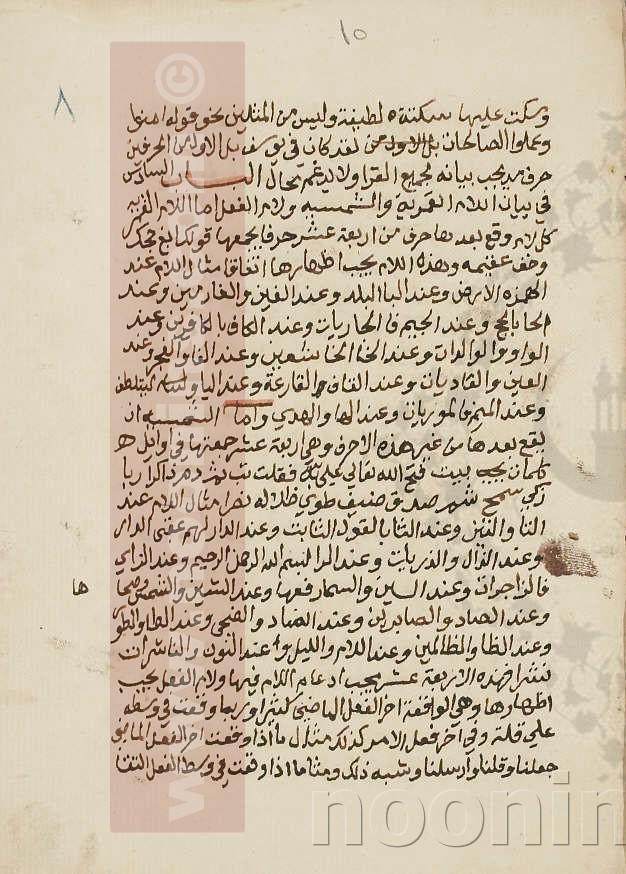 ١٥
٨
وسكت عليها سكتة لطيفة وليس من المثلين نحو قوله امنوا
وعملوا الصالحات بل الاول من لقد كان في يوسف بل الاول من الحرفين
حرف مد يجب بيانه لجميع القرا ولا يدغم بحال الباب السادس
في بيان اللام القمرية والشمسيه ولام الفعل اما اللام القمريه
كل لام وقع بعدها حرف من اربعة عشر حرفا يجمعها قولك ابغ حجك
وخف عقيمه وهذه اللام يجب اظهارها اتفاقا مثال اللام عند
الهمزه الارض وعند البا البلد وعند الغين والغارمين وعند
الحا بالحج وعند الجيم فالجاريات وعند الكاف بالكافرين وعند
الواو والوالدات وعند الخا الخاشعين وعند الفا والفجر وعند
العين والعاديات وعند القاف القارعة وعند اليا وليتلطف
وعند الميم فالموريات وعند الها والهدي واما الشمسيه ان
يقع بعدها من غير هذه الاحرف وهي اربعة عشر جمعتها في اوايل
كلمات بيت فتح الله تعالي علي به فقلت تب ثم دم ذاكرا ربا
زكي سمح شهم صدوق ضيف طوي ظلاله نفرا مثال اللام عند
التا والتين وعند الثا بالقول الثابت وعند الدال لهم عقبى الدار
وعند الذال والذريات وعند الرا بسم الله الرحمن الرحيم وعند الزاي
فالزاجرات وعند السين والسما رفعها وعند الشين والشمس وضحا
ها
وعند الصاد والصابرين وعند الضاد والضحى وعند الطا والطور
وعند الظا والظالمين وعند اللام والليل وعند النون والناشرات
نشرا فهذه الاربعة عشر يجب ادغام اللام فيها ولام الفعل يجب
اظهارها وهي الواقعة اخر الفعل الماضي كثيرا وربما وقعت في وسطه
علي قلة وفي آخر فعل الامر كذلك مثال ما اذا وقعت اخر الفعل الماضي
جعلنا وقلنا وارسلنا وشبه ذلك ومثا ما اذا وقعت في وسط الفعل التقا
noonin